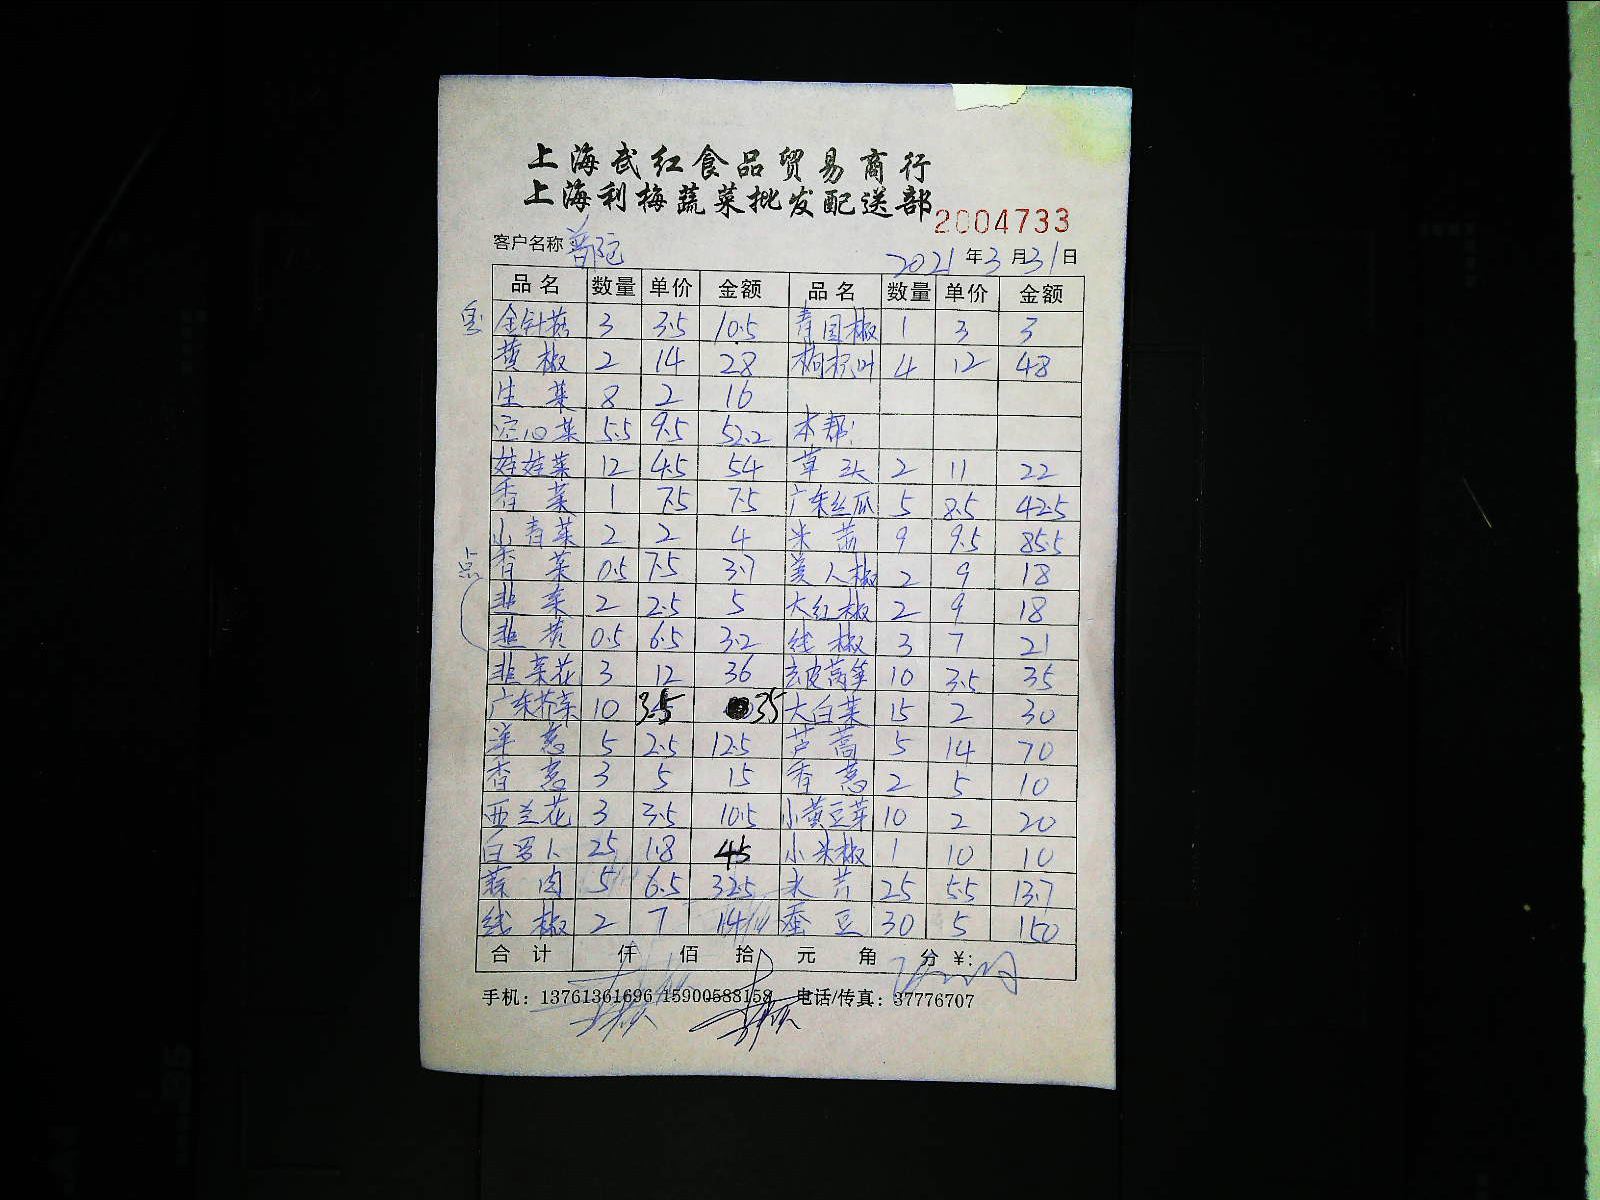 上海武红食品贸易商行
上海利梅蔬菜批发配送部
2004733
客户名称 普陀 2021年3月31日
品名 数量 单价 金额 品名 数量 单价 金额
金针菇 3 3.5 10.5 青圆椒 1 3 3
黄椒 2 14 28 枸杞叶 4 12 48
生菜 8 2 16
空心菜 5.5 9.5 52.2 本帮:
娃娃菜 12 4.5 54 草头 2 11 22
香菜 1 7.5 7.5 广东丝瓜 5 8.5 42.5
小青菜 2 2 4 米苋 9 9.5 85.5
点
香菜 0.5 7.5 3.7 美人椒 2 9 18
韭菜 2 2.5 5 大红椒 2 9 18
韭黄 0.5 6.5 3.2 线椒 3 7 21
韭菜花 3 12 36 去皮莴笋 10 3.5 35
广东芥菜 10 3.5 35 大白菜 15 2 30
洋葱 5 2.5 12.5 芦蒿 5 14 70
香葱 3 5 15 香葱 2 5 10
西兰花 3 3.5 10.5 小黄豆芽 10 2 20
白萝卜 25 1.8 45 小米椒 1 10 10
蒜肉 5 6.5 32.5 水芹 25 5.5 13.7
线椒 2 7 14 蚕豆 30 5 150
合计 仟 佰 拾 元 角 分 ¥:
手机: 13761361696 15900588158 电话/传真: 37776707